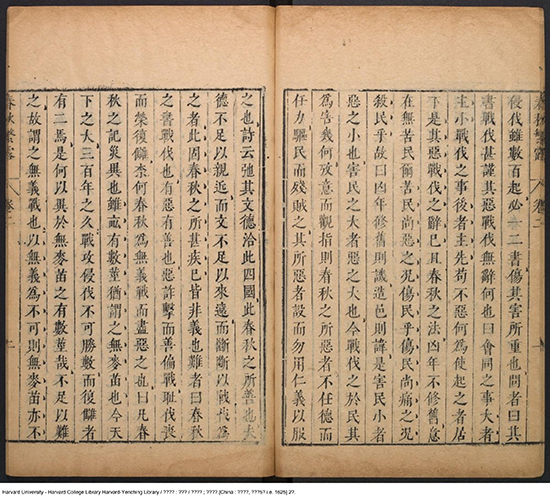 侵伐雖數百起必一二書傷其害所重也問者曰其
書戰伐甚謹其惡戰伐無辭何也曰會同之事大者
主小戰伐之事後者主先苟不惡何為使起之者居
下是其惡戰伐之辭已且春秋之法凶年不修舊意
在無苦民爾苦民尚惡之況傷民乎傷民尚痛之況
殺民乎故曰凶年修舊則譏造邑則諱是害民小者
惡之小也害民之大者惡之大也今戰伐之於民其
為害幾何攷意而觀指則春秋之所惡者不任德而
任力驅民而殘賊之其所惡者設而勿用仁義以服
之也詩云弛其文德洽此四國此春秋之所善也夫
德不足以親近而文不足以來遠而斷斷以戰伐為
之者此固春秋之所甚疾已皆非義也難者曰春秋
之書戰伐也有惡有善也惡詐擊而善偏戰恥伐喪
而榮復讎奈何春秋為無義戰而盡惡之也曰凡春
秋之記災異也雖畝有數莖猶謂之無麥苗也今天
下之大三百年之久戰攻侵伐不可勝數而復讎者
有二焉是何以異於無麥苗之有數莖哉不足以難
之故謂之無義戰也以無義為不可則無麥苗亦不
春秋繁露 卷二
Harvard University - Harvard College Library Harvard-Yenching Library / ???? : ??? / ???? ; ???? [China : ????, ???5? i.e. 1625] 27.